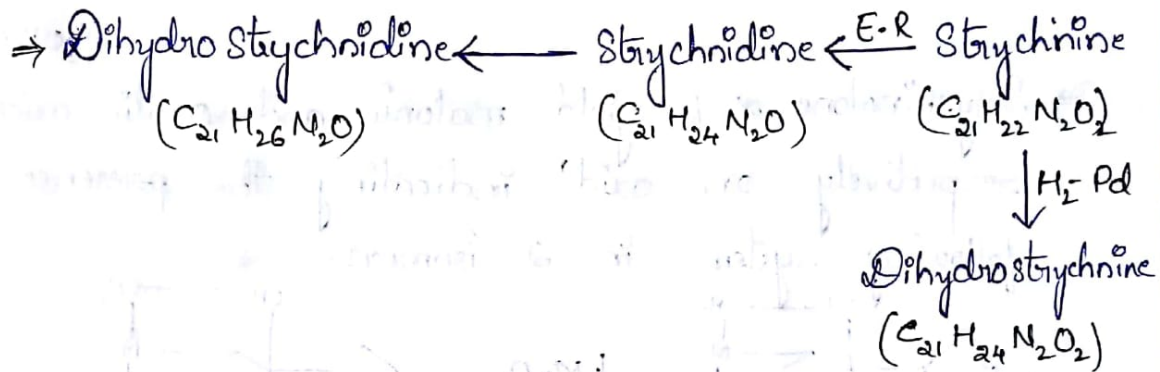 ⇒ Dihydro Strychnidine ← Strychnidine ←E·R Strychnine
(C₂₁H₂₆N₂O) (C₂₁H₂₄N₂O) (C₂₁H₂₂N₂O₂)
↓ H₂- Pd
Dihydrostrychnine
(C₂₁H₂₄N₂O₂)